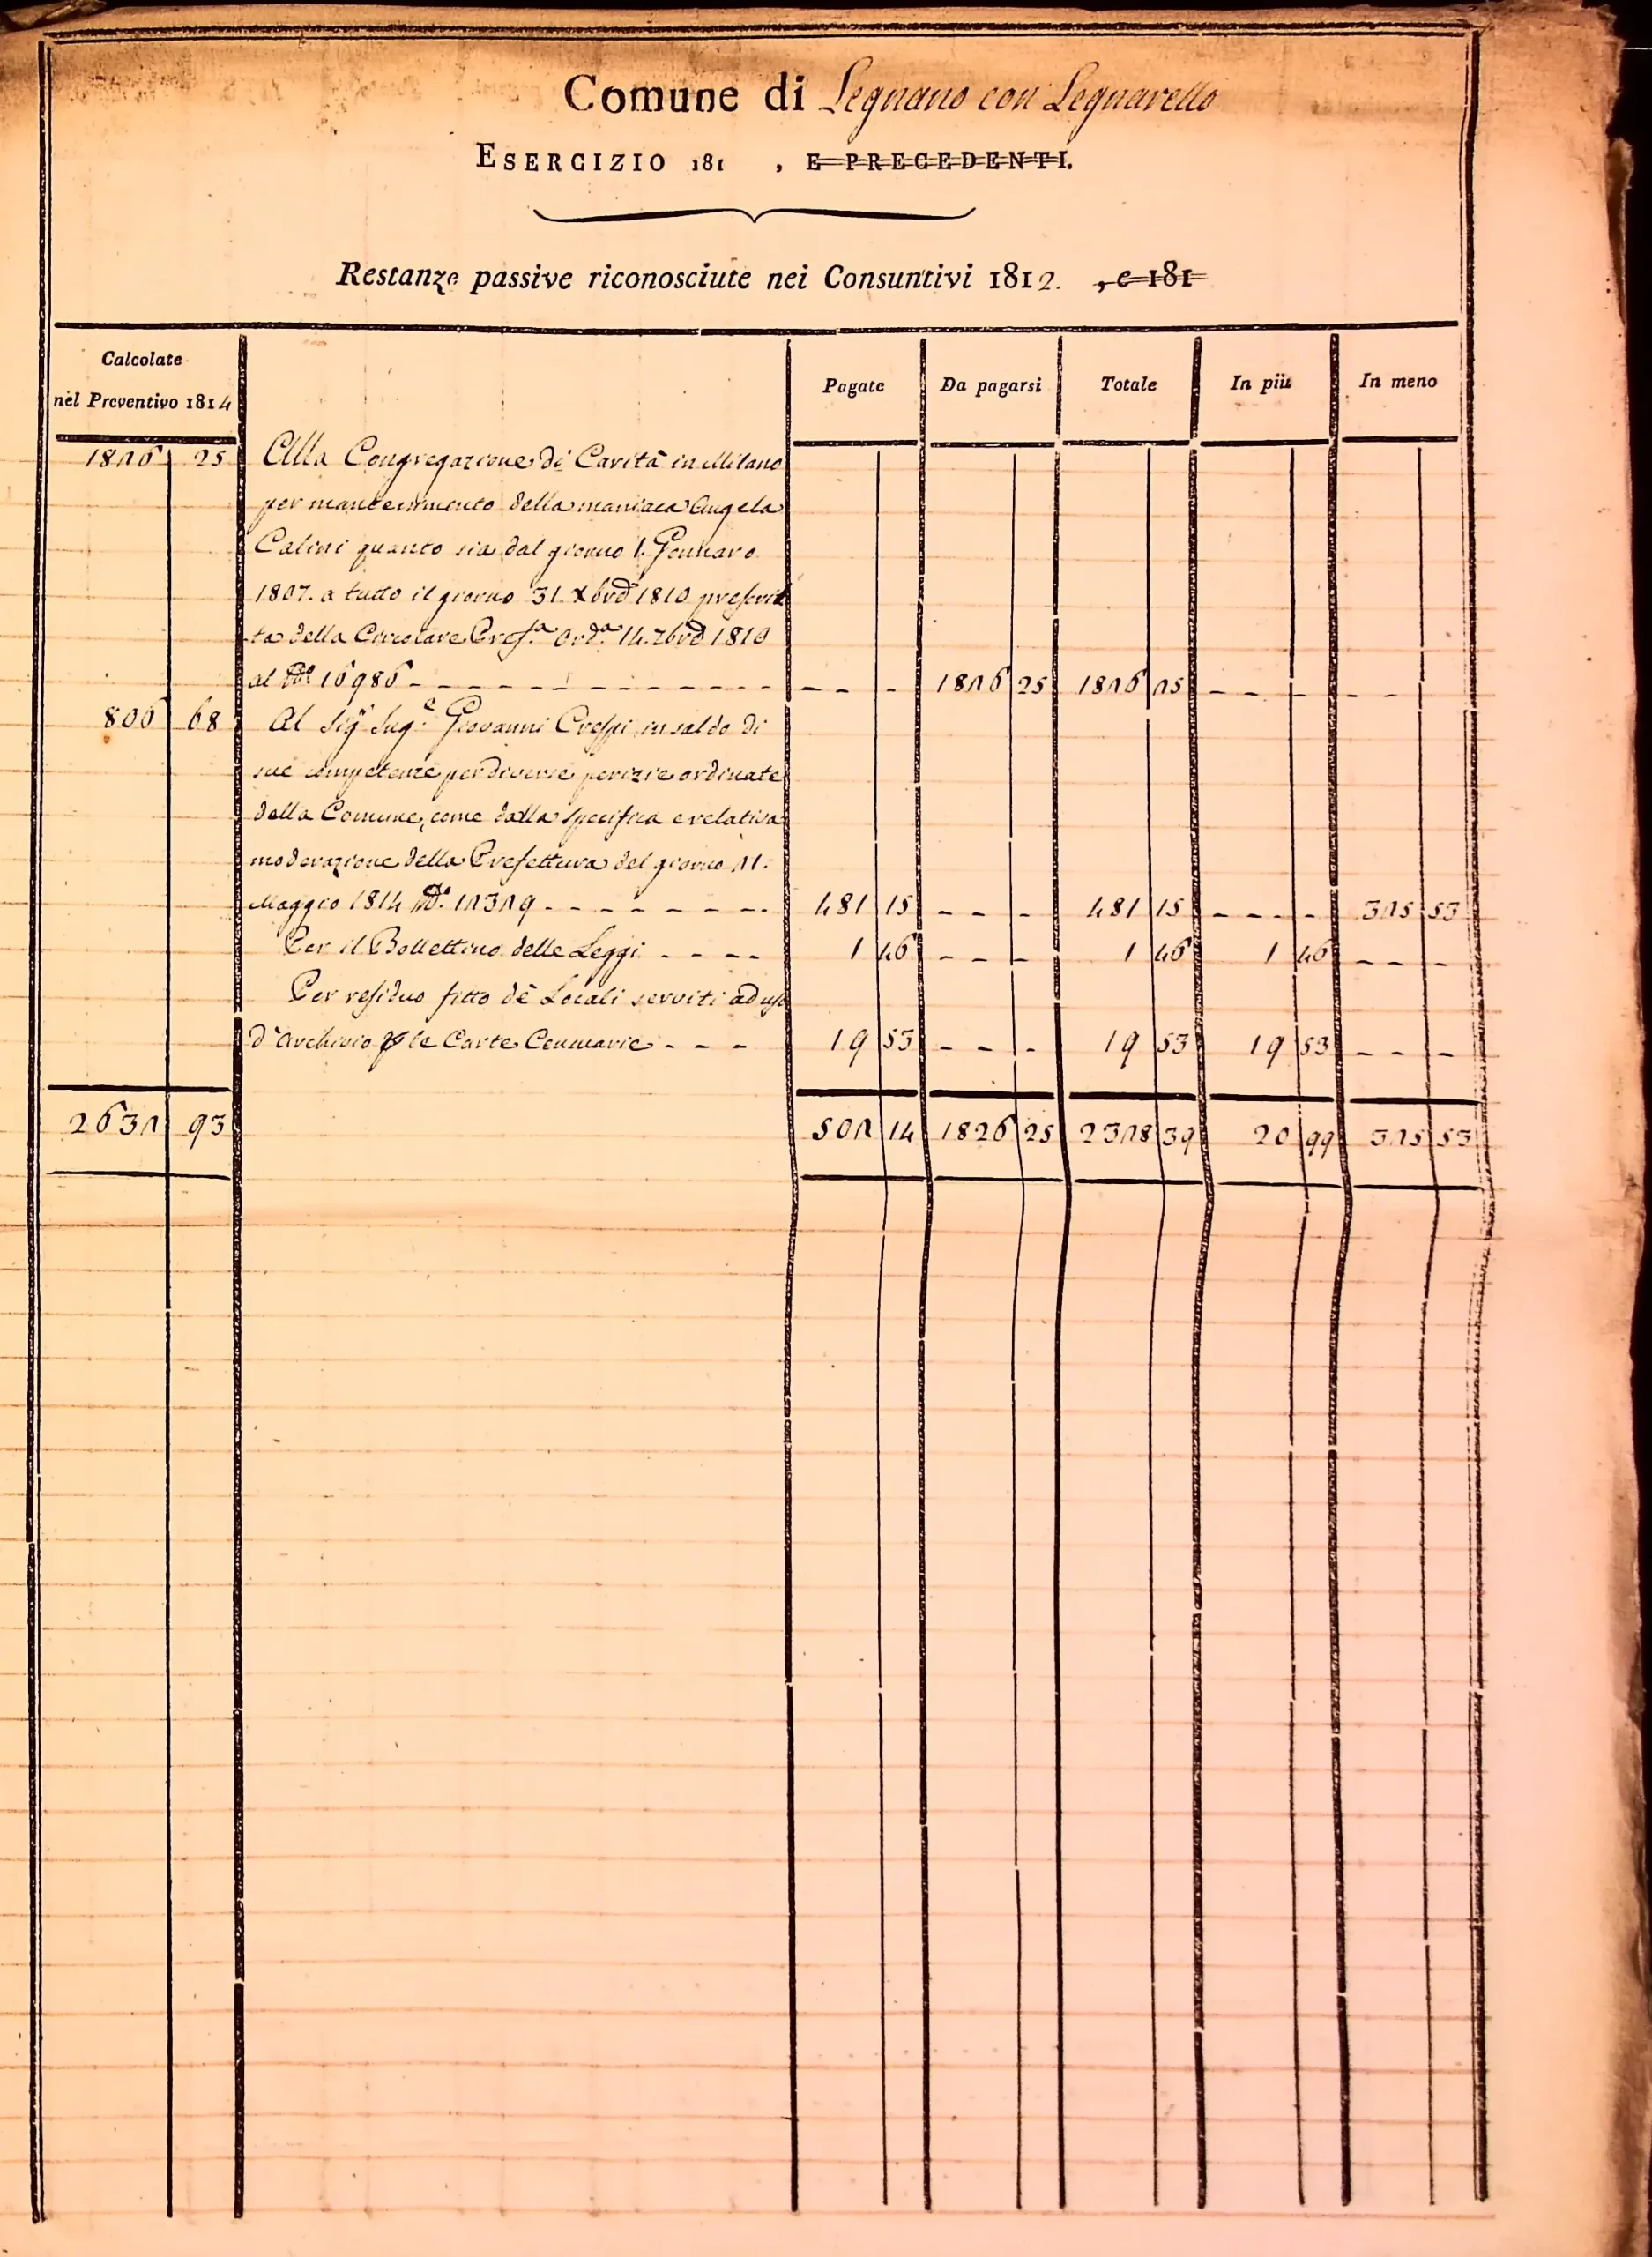 Comune di Legnano con Legnarello
ESERCIZIO 181 , E PRECEDENTI.
Restanze passive riconosciute nei Consuntivi 1812. , e 181
Calcolate
nel Preventivo 1814
Pagate Da pagarsi Totale In più In meno
1826 25 Alla Congregazione di Carità in Milano
per mantenimento della maniaca Angela
Calini quanto sia dal giorno 1. Gennaro
1807. a tutto il giorno 31. Xbrẽ 1810 prescrit
ta dalla Circolare Pref.ª Ord.ª 14. 7brẽ 1810
al N.º 16986 - - - 1826 25 1826 25 - - -
806 68 Al Sig.r Ing.e Giovanni Crespi in saldo di
sue competenze per diverse perizie ordinate
dalla Comune, come dalla specifica e relativa
moderazione della Prefettura del giorno 21.
Maggio 1814 N.º 12329 - - - 481 15 - - - 481 15 - - - 325 53
Per il Bollettino delle Leggi - - - 1 46 - - - 1 46 1 46 - - -
Per residuo fitto dè Locali serviti ad uso
d'Archivio p le Carte Censuarie - - - 19 53 - - - 19 53 19 53 - - -
2632 93 502 14 1826 25 2328 39 20 99 325 53